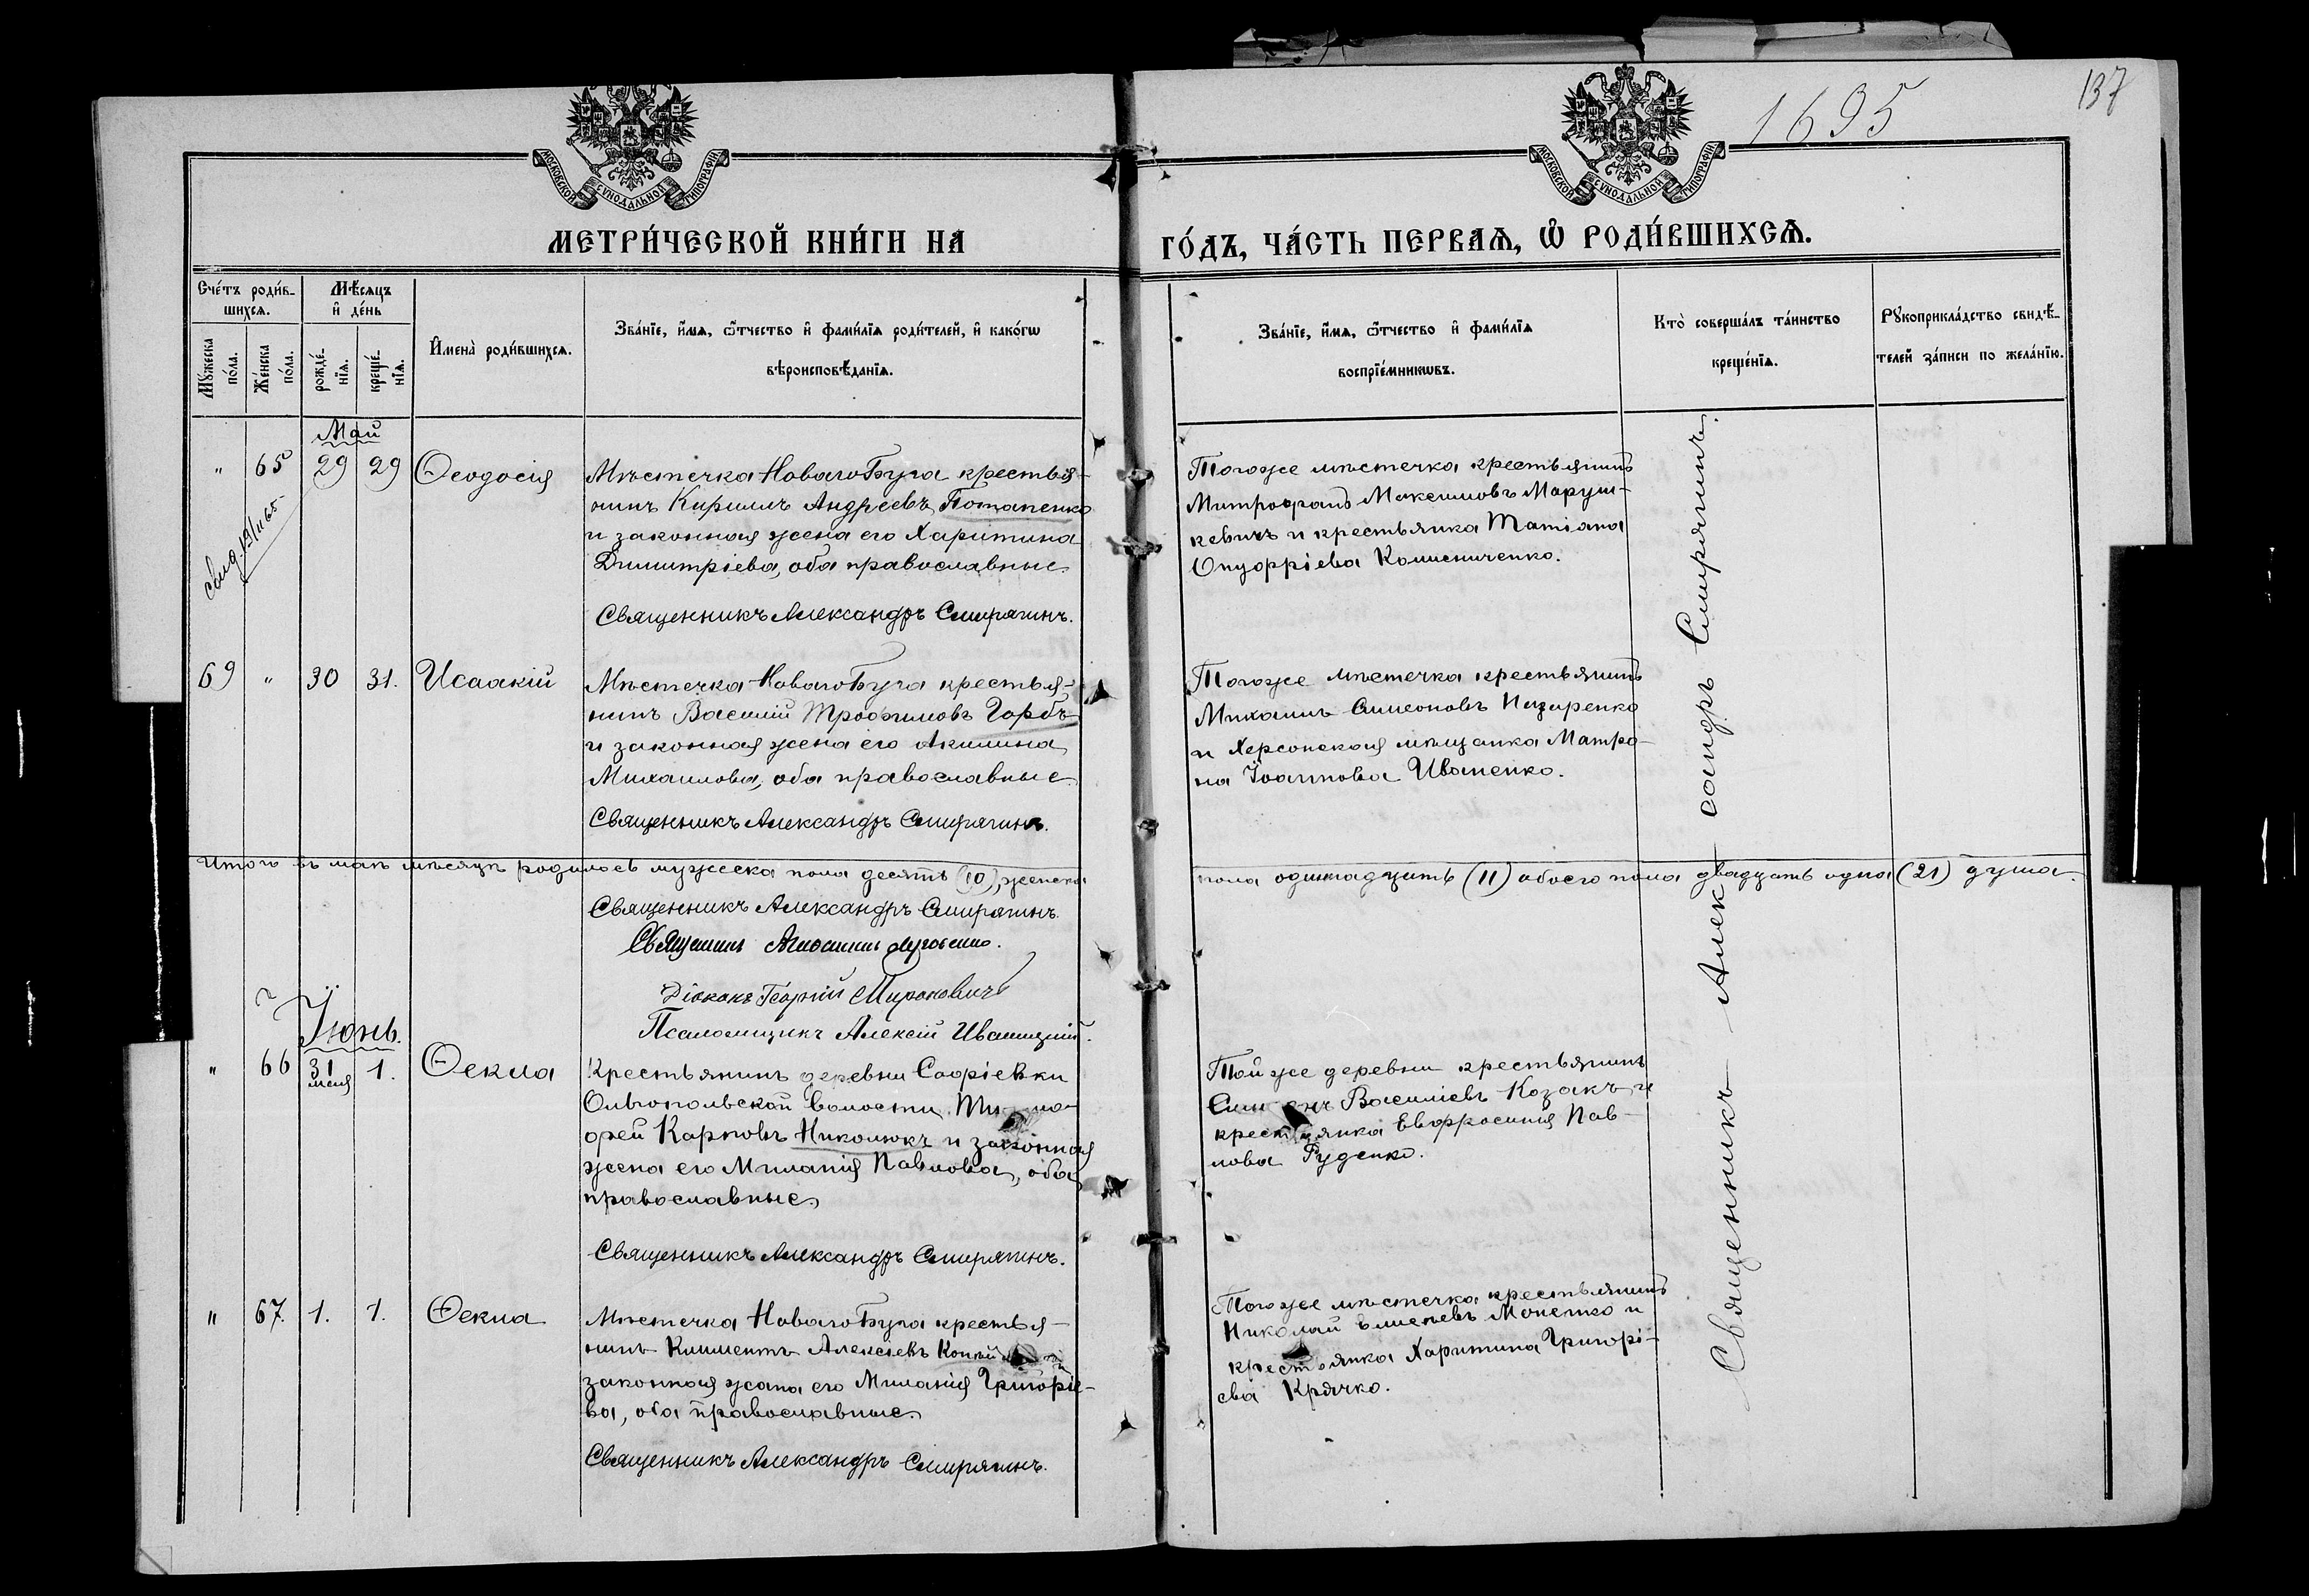 137
1695
МОСКОВСКОЙ СУНОДАЛЬНОЙ ТИПОГРАФІИ
МОСКОВСКОЙ СУНОДАЛЬНОЙ ТИПОГРАФІИ
МЕТРИ́ЧЕСКОЙ КНИ́ГИ НА
ГО́ДЪ, ЧА́СТЬ ПЕРВАѦ, Ѡ҆ РОДИ́ВШИХСѦ.
Сче́тъ роди́в-
шихсѧ.
Мꙋ́жеска
по́ла.
Же́нска
по́ла.
Мѣ́сѧцъ
и҆ де́нь
рожде́-
нїѧ.
креще́-
нїѧ.
И҆мена̀ роди́вшихсѧ.
Зва́нїе, и҆́мѧ, ѻ҆́тчество и҆ фами́лїѧ роди́телей, и҆ како́гѡ
вѣроисповѣ́данїѧ.
Зва́нїе, и҆́мѧ, ѻ҆́тчество и҆ фами́лїѧ
воспрїе́мникѡвъ.
Кто̀ соверша́лъ та́инство
креще́нїѧ.
Рꙋкоприкла́дство свидѣ́-
телей за́писи по жела́нїю.
Май
" 65 29 29 Ѳеодосія
Мѣстечка Новаго Буга крестья-
нинъ Кириллъ Андреевъ Потапенко
и законная жена его Харитина
Димитріева, оба православные.
Священникъ Александръ Смирягинъ.
Того же мѣстечка крестьянинъ
Митрофанъ Максимовъ Маруш-
кевичъ и крестьянка Татіана
Онуфріева Колисниченко.
69 " 30 31. Исаакій
Мѣстечка Новаго Буга крестья-
нинъ Василій Трофимовъ Горбъ
и законная жена его Акилина
Михаилова, оба православные.
Священникъ Александръ Смирягинъ.
Того же мѣстечка крестьянинъ
Михаилъ Симеоновъ Назаренко
и Херсонская мѣщанка Матро-
на Іоаннова Иваненко.
Итого въ маѣ мѣсяцѣ родилось мужеска пола десять (10), женска
пола одиннадцать (11) обоего пола двадцать одна (21) душа.
Священникъ Александръ Смирягинъ.
Священникъ
Діаконъ Георгій Мироновичъ
Псаломщикъ Алексій Ивашицкій.
Іюнь.
" 66 31 мая 1. Ѳекла
Крестьянинъ деревни Софіевки
Ольгопольской волости
фей Карповъ Николюкъ и законная
жена его Миланія Павлова, оба
православные.
Священникъ Александръ Смирягинъ.
Той же деревни крестьянинъ
Василіевъ Козакъ и
крестьянка Евфросинія Пав-
лова Руденко.
" 67. 1. 1. Ѳекла
Мѣстечка Новаго Буга крестья-
нинъ Климентъ Алексіевъ
законная жена его Миланія Григоріе-
ва, оба православные.
Священникъ Александръ Смирягинъ.
Того же мѣстечка крестьянинъ
Николай и
крестьянка Харитина Григорі-
ева Крячко.
Священникъ Александръ Смирягинъ.